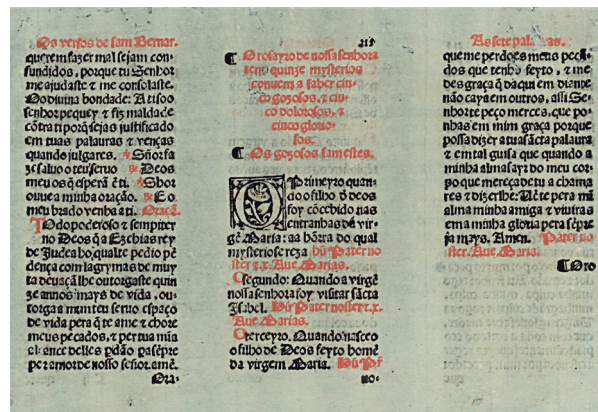 Os versos de sam Bernar.
querem fazer mal sejam con-
fundidos, porque tu Senhor
me ajudaste & me consolaste.
O divina bondade: A ti soo
senhor pequey & fiz maldade
cõtra ti porq̃ sejas justificado
em tuas palauras & venças
quando julgares. Sñor fa
ze saluo o teu seruo Deos
meu os q̃ esperã ẽ ti. Sñor
ouue a minha oração. E o
meu brado venha a ti. Oracã.
Todo poderoso & sempiter
no Deos q̃ a Ezechias rey
de Judea ho qual te pedio pẽ
dença com lagrymas de muy
ta deuaçã lhe outorgaste quin
ze annos mays de vida, ou-
torga a mim teu seruo espaço
de vida pera q̃ te ame & chore
meus pecados, & per tua mia
alcance delles pdão pa sẽpre
per amor de nosso señor. amẽ.
Ora-
215
¶ O rosayro de nossa senhora
tem quinze mysterios
conuem a saber cin
co gozosos, & cin
co dolorosos, &
cinco glorio-
sos.
¶ Os gozosos sam estes.
O Primeyro quan-
do o filho d̃ deos
foy cõcebido nas
entranhas da vir
gẽ Maria: aa hõrra do qual
mysterio se reza hũ Pater no
ster & x. Aue Marias.
O segundo: Quando a virgẽ
nossa senhora foy visitar sãcta
Isabel. Hũ Pater noster & x.
Aue Marias.
O terceyro. Quando nasceo
o filho de Deos feyto homẽ
da virgem Maria. Hũ Pr̃
no-
As sete palauras.
que me perdoes meus peca-
dos que tenho feyto, & me
des graça q̃ daqui em diante
não caya em outros, assi Se-
nhor te peço merces, que po-
nhas em mim graça porque
possa dizer a tua sãcta palaura
& em tal guisa que quando a
minha alma sayr do meu cor-
po que mereça de tu a chama
res & dizerlhe: Vẽ te pera mĩ
alma minha amiga & viuiras
em a minha gloria pera sẽpre
ja mays. Amen. Pater no-
ster. Aue Maria.
¶ O ro